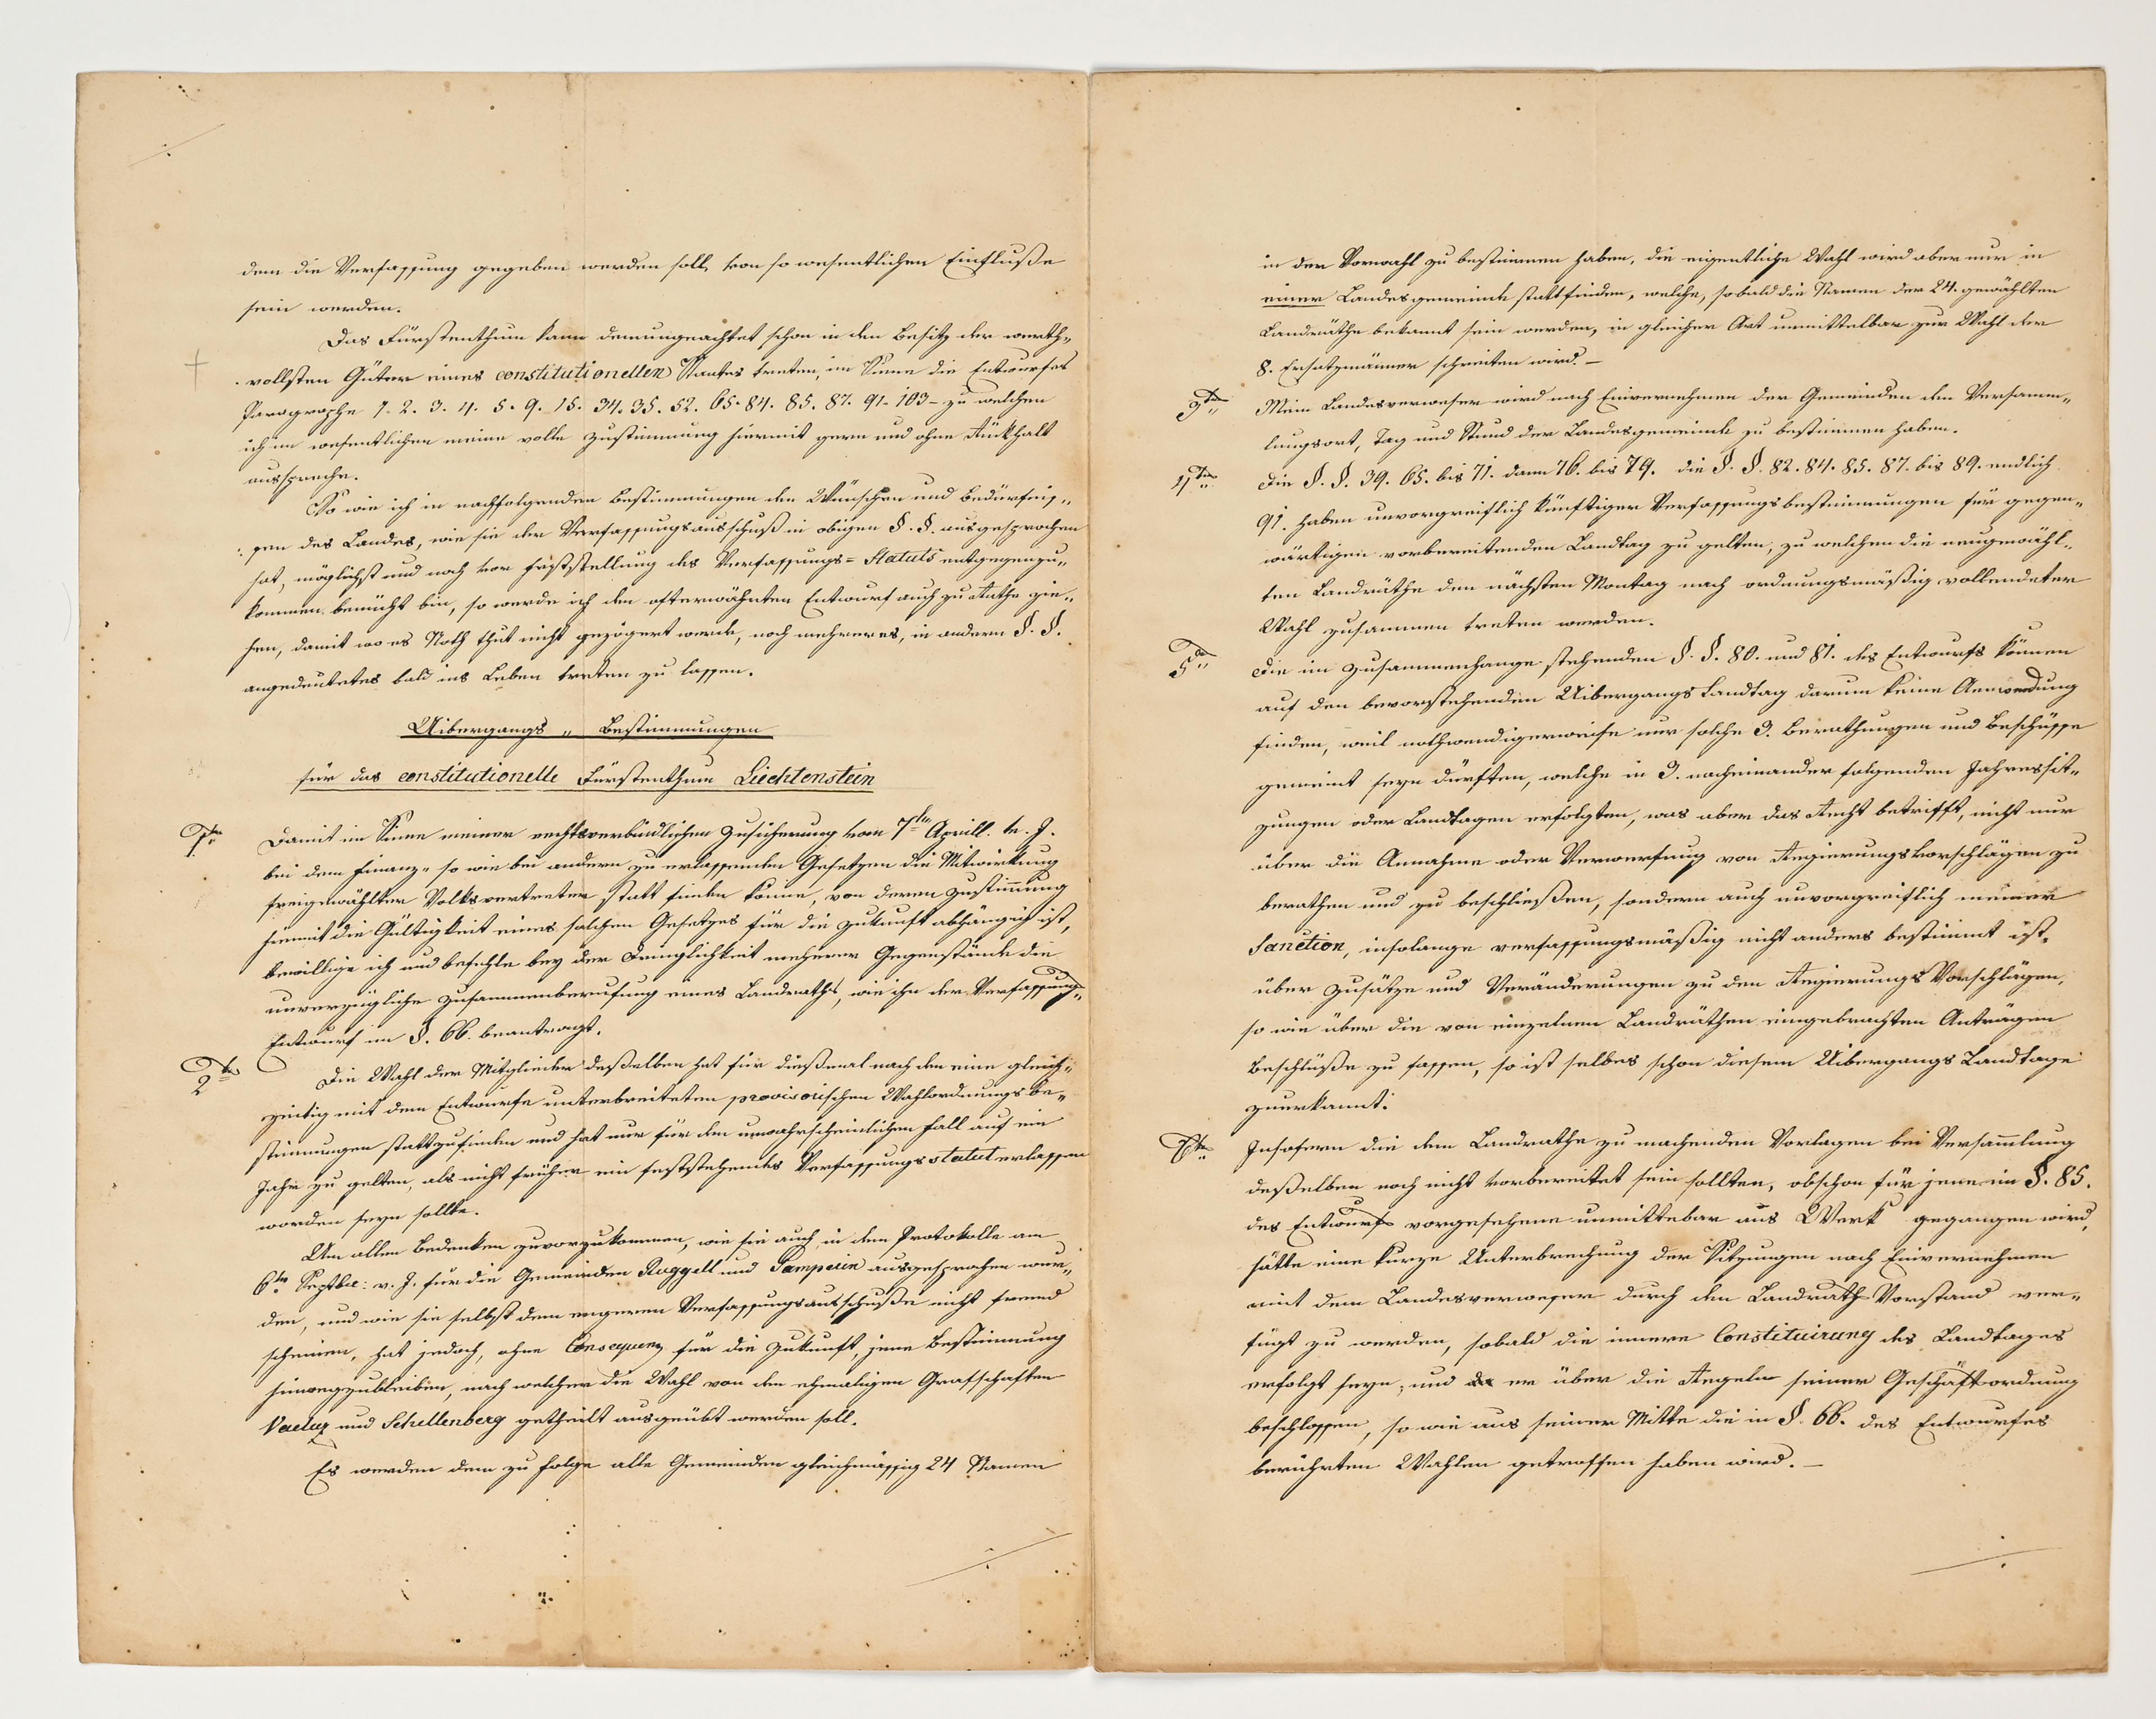 dem die Verfassung gegeben werden soll, von so wesentlichen Einfluße
sein werden.
Das Fürstenthum kann demungeachtet schon in den Besitz der werth„
vollsten Güter eines constitutionellen Staates treten, im Sinne die Entwurfes
Paragraphe 1. 2. 3. 4. 5. 9. 15. 34. 35. 52. 65. 84. 85. 87. 91. 103 – zu welchen
ich im wesentlichen meine volle Zustimmung hiermit gern und ohne Rückhalt
ausspreche.
So wie ich in nachfolgenden Bestimmungen den Wünschen und Bedürfniß„
sen des Landes, wie sie der Verfassungsausschuß in obigen §. §. ausgesprochen
hat, möglichst und noch vor Feststellung des Verfassungs=Statuts entgegenzu„
kommen bemüht bin, so werde ich den ofterwähnten Entwurf auch zu Rathe zie„
hen, damit wo es Noth thut nicht gezögert werde, noch mehreres, in andern §. §.
angedeutetes bald ins Leben treten zu lassen.
Uibergangs „ Bestimmungen
für das constitutionelle Fürstenthum Liechtenstein
1tens Damit im Sinne meiner rechtsverbindlichen Zusicherung vom 7ten Aprill. v. J.
bei dem Finanz„ so wie bei andern zu erlassenden Gesetzen die Mitwirkung
freigewählter Volksvertreter statt finden könne, von deren Zustimmung
hiemit die Gültigkeit eines solchen Gesetzes für die Zukunft abhängig ist,
bewillige ich und befehle bey der Dringlichkeit mehrerer Gegenstände die
unverzügliche Zusammenberufung eines Landraths, wie ihn der Verfassungs„
Entwurf im §. 66. beantragt.
2tens Die Wahl der Mitglieder deßelben hat für dießmal nach den eine gleich„
zeitig mit dem Entwurfe unterbreiteten provisorischen Wahlordnungs be„
stimmungen stattzufinden und hat nur für den unwahrscheinlichen Fall auf ein
Jahr zu gelten, als nicht früher ein feststehendes Verfassungsstatut erlassen
worden seyn sollte.
Um allen Bedenken zuvorzukommen, wie sie auch in dem Protokolle am
6ten Septbr: v. J. für die Gemeinden Ruggell und Gamprin ausgesprochen wur„
den, und wie sie selbst dem engeren Verfassungsausschuße nicht fremd
scheinen, hat jedoch, ohne Consequenz für die Zukunft, jene Bestimmung
hinwegzubleiben, nach welcher die Wahl von den ehmaligen Grafschaften
Vaduz und Schellenberg getheilt ausgeübt werden soll.
Es werden dem zu Folge alle Gemeinden gleichmässig 24 Namen
in der Vorwahl zu bestimmen haben, die eigentliche Wahl wird aber nur in
einer Landesgemeinde stattfinden, welche, sobald die Namen der 24. gewählten
Landräthe bekannt sein werden, in gleicher Art unmittelbar zur Wahl der
8. Ersatzmänner schreiten wird. –
3tens Mein Landesverweser wird nach Einvernehmen der Gemeinden den Versamm„
lungsort, Tag und Stund der Landesgemeinde zu bestimmen haben.
4tens Die §. §. 39. 65. bis 71. dann 76. bis 79. die §. §. 82. 84. 85. 87. bis 89. endlich
91. haben unvorgreiflich künftiger Verfassungsbestimmungen für gegen„
wärtigen vorbereitenden Landtag zu gelten, zu welchen die neugewähl„
ten Landräthe den nächsten Montag nach ordnungsmäßig vollendeter
Wahl zusammen treten werden.
5tens Die im Zusammenhange stehenden §. §. 80. und 81. des Entwurfs können
auf den bevorstehenden Uibergangs Landtag darum keine Anwendung
finden, weil nothwendigerweise nur solche 3. Berathungen und Beschlüsse
gemeint seyn dürften, welche in 3. nacheinander folgenden Jahressit„
zungen oder Landtagen erfolgten, was aber das Recht betrifft, nicht nur
über die Annahme oder Verwerfung von Regierungsvorschlägen zu
berathen und zu beschließen, sondern auch unvorgreiflich meiner
Sanction, insolange verfassungsmäßig nicht anders bestimmt ist,
über Zusätze und Veränderungen zu den Regierungs Vorschlägen,
so wie über die von einzelnen Landräthen eingebrachten Anträgen
Beschlüße zu fassen, so ist selbes schon diesem Uibergangs Landtage
zuerkannt.
6tens Insofern die dem Landrathe zu machenden Vorlagen bei Versammlung
deßelben noch nicht vorbereitet sein sollten, obschon für jene im §. 85.
des Entwurfs vorgesehene unmittebar ans Werk gegangen wird,
hätte eine kurze Unterbrechung der Sitzungen nach Einvernehmen
mit dem Landesverweser durch den Landraths Vorstand ver„
fügt zu werden, sobald die innere Constituirung des Landtages
erfolgt seyn, und er über die Regeln seiner Geschäftsordnung
beschlossen, so wie aus seiner Mitte die in §. 66. des Entwurfes
berührten Wahlen getroffen haben wird. –